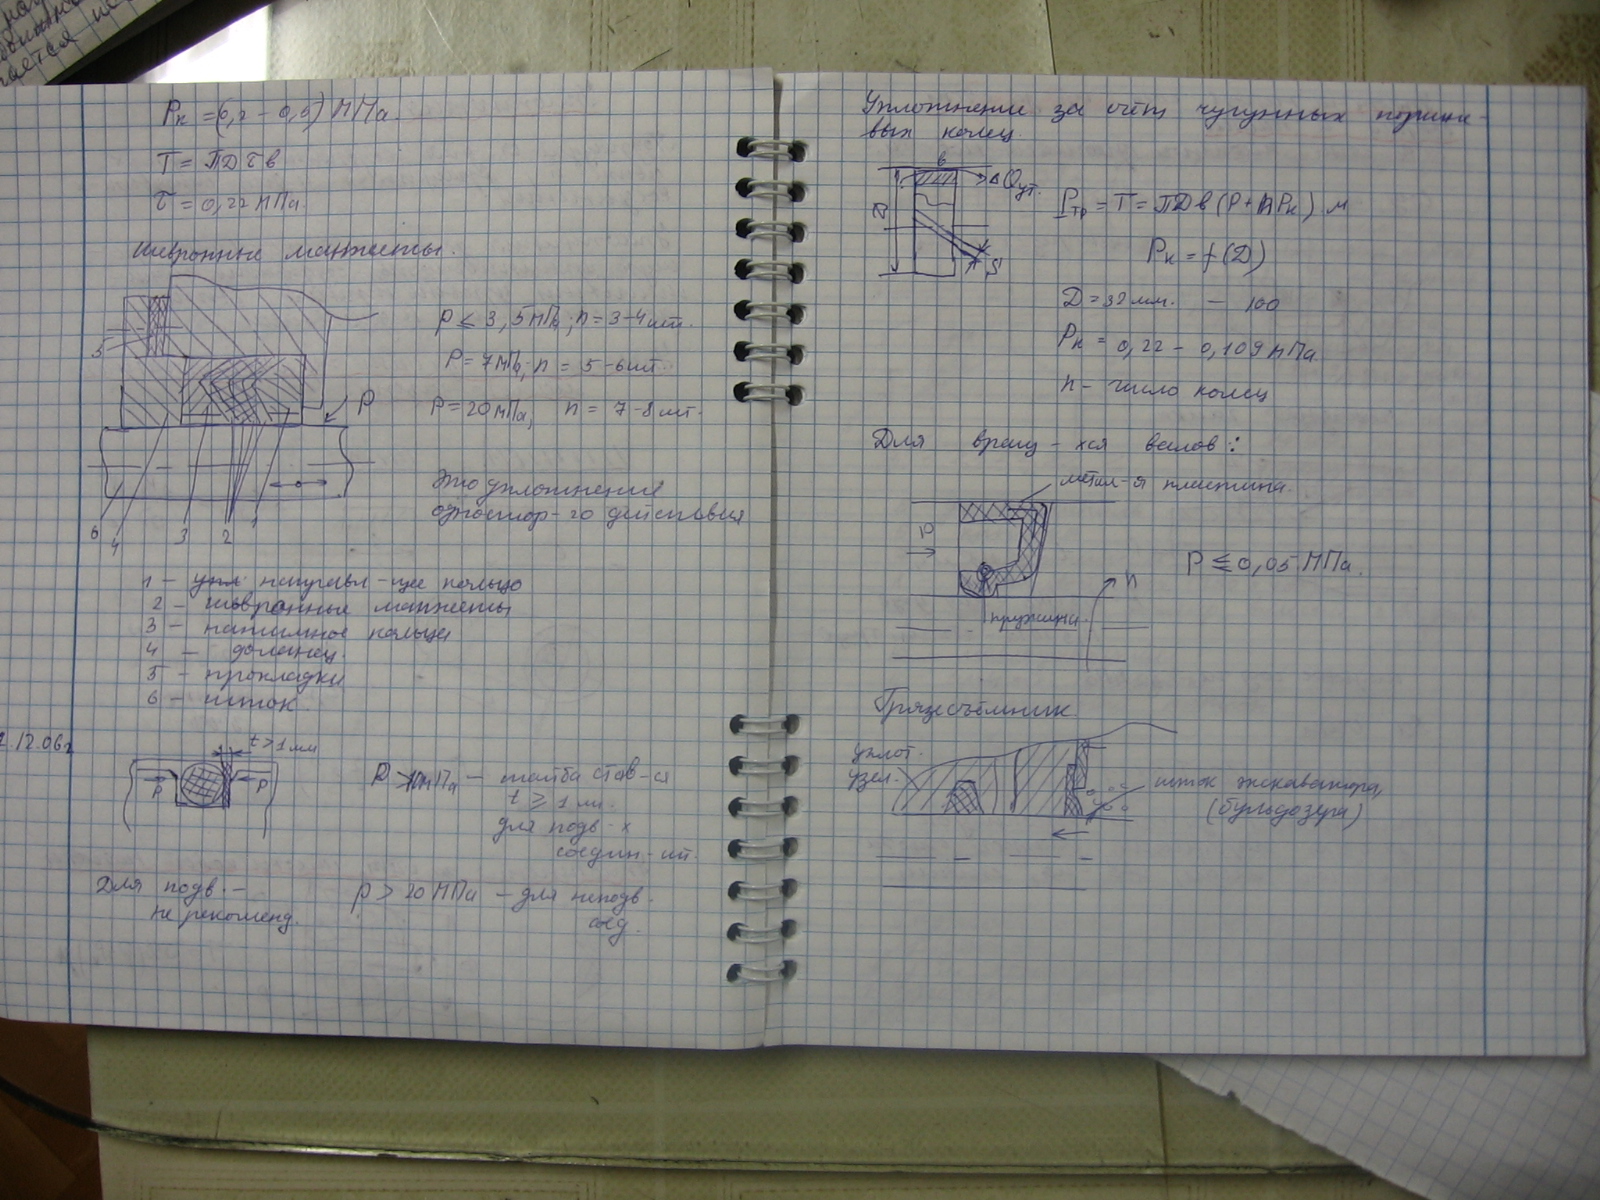 Pк = (0,2 – 0,5) МПа.
T = ПД τ в
τ = 0,22 МПа
Шевронные манжеты.
5
P ≤ 3,5 МПа; n = 3-4 шт.
P = 7 МПа; n = 5-6 шт.
P
P = 20 МПа, n = 7-8 шт.
Это уплотнение
одностор-го действия
6 4 3 2 1
1 – направл-щее кольцо
2 – шевронные манжеты
3 – нажимное кольцо
4 – фланец.
5 – прокладки
6 – шток.
12.06г
t > 1 мм
P P
P > 10 МПа – шайба став-ся
t ≥ 1 мм.
для подв-х
соедин-ий.
Для подв. –
не рекоменд.
P > 20 МПа – для неподв.
соед.
Уплотнение за счёт чугунных поршне-
вых колец.
в
ΔQут.
Д
S
Pтр = T = ПДв (P + nPк) м
Pк = f (Д)
Д = 32 мм. – 100
Pк = 0,22 – 0,109 МПа
n – число колец
Для вращ-хся валов:
метал-я пластина.
P
P ≤ 0,05 МПа.
n
пружина.
Грязесъёмник
уплот.
узел.
шток экскаватора,
(бульдозера)